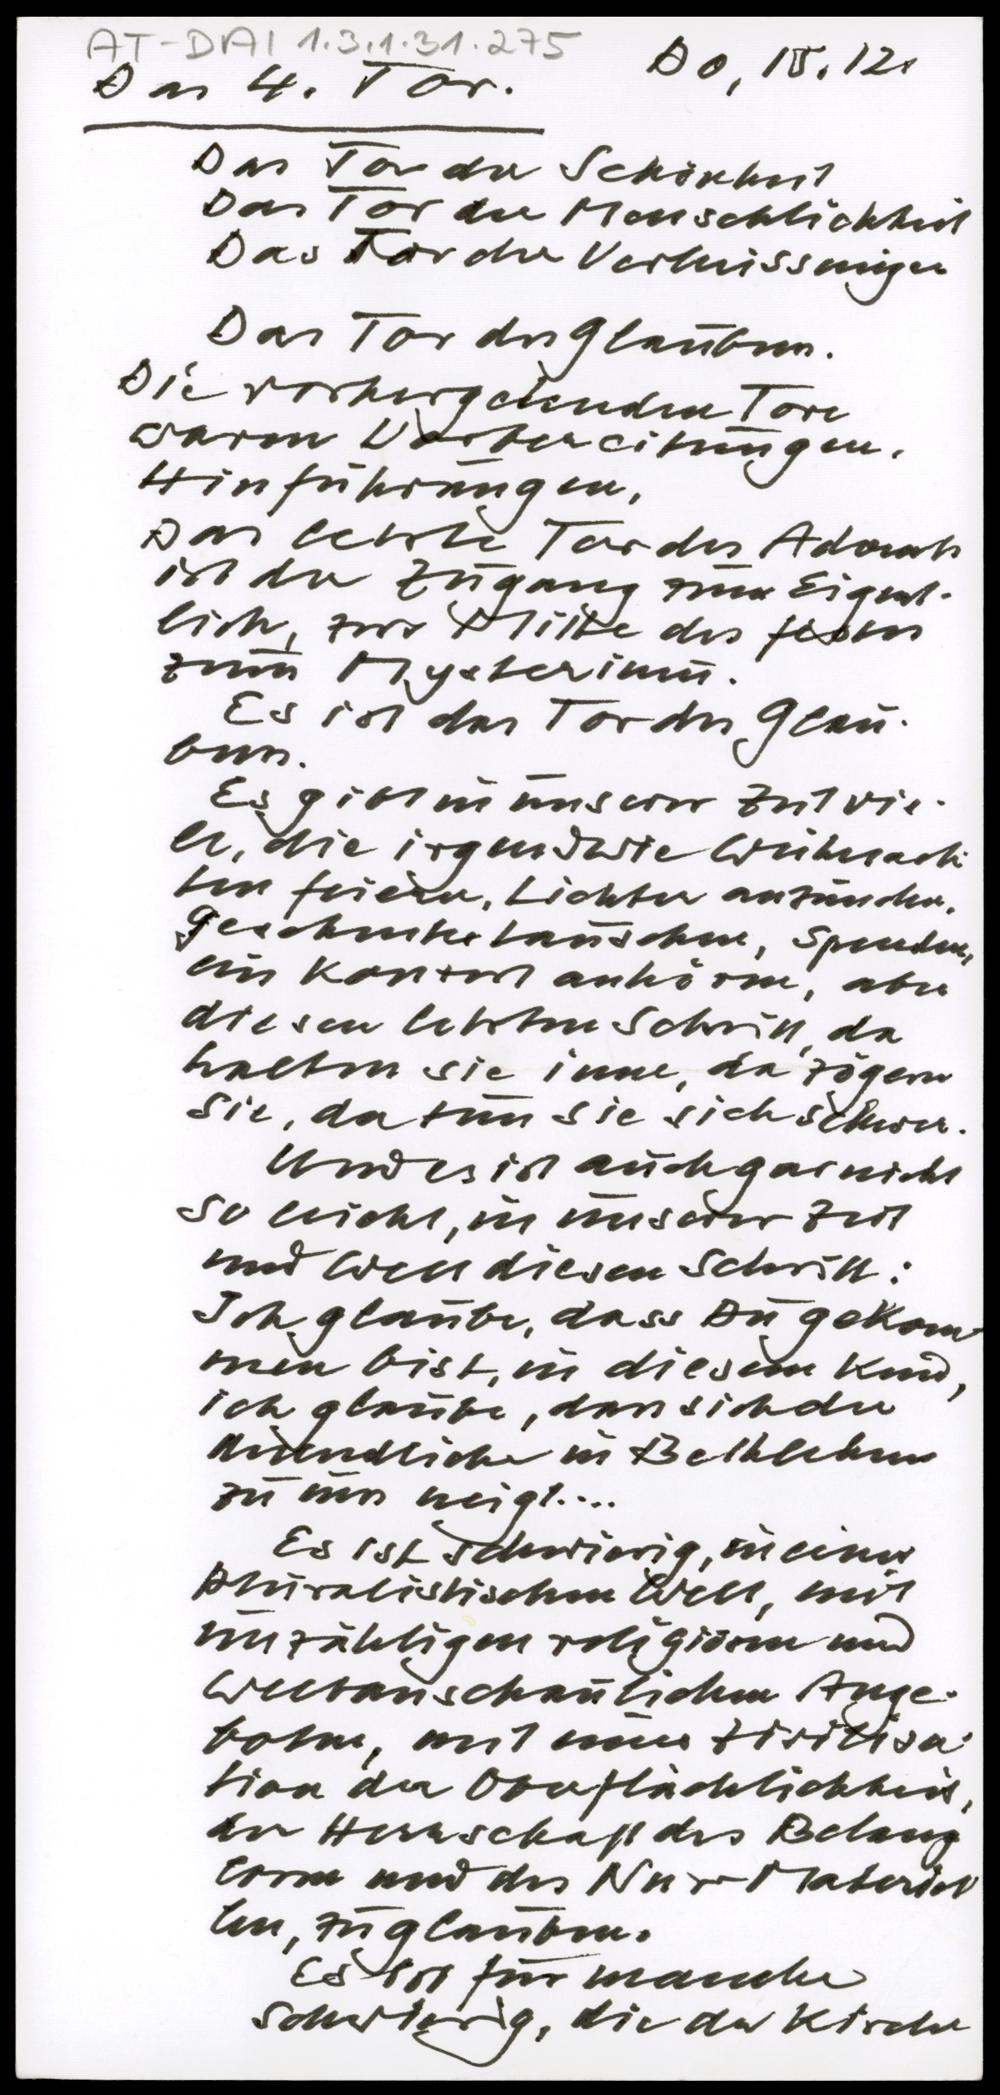 AT-DAI 1.3.1.31.275
Do, 15.12.
Das 4. Tor.
Das Tor der Schönheit
Das Tor der Menschlichkeit
Das Tor der Verheissungen
Das Tor des Glaubens.
Die vorhergehenden Tore
waren Vorbereitungen.
Hinführungen.
Das letzte Tor des Advents
ist der Zugang zum Eigent-
lich, zur Mitte des Festes
zum Mysterium.
Es ist das Tor des Glau-
bens.
Es gibt in unserer Zeit vie-
le, die irgendwie Weihnach-
ten feiern, Lichter anzünden,
Geschenke tauschen, Spenden,
ein Konzert anhören, aber
diesen letzten Schritt, da
halten sie inne, da zögern
sie, da tun sie sich schwer.
Und es ist auch gar nicht
so leicht, in unserer Zeit
und Welt diesen Schritt:
Ich glaube, dass Du gekom-
men bist, in diesem Kind,
ich glaube, dass sich der
Unendliche in Bethlehem
zu uns neigt....
Es ist schwierig, in einer
pluralistischen Welt, mit
unzähligen religiösen und
weltanschaulichen Ange-
boten, mit einer Zivilisa-
tion der Oberflächlichkeit,
der Herrschaft des Belang
losen und des Nur-Materiel
len, zu glauben.
Es ist für manche
schwierig, die der Kirche